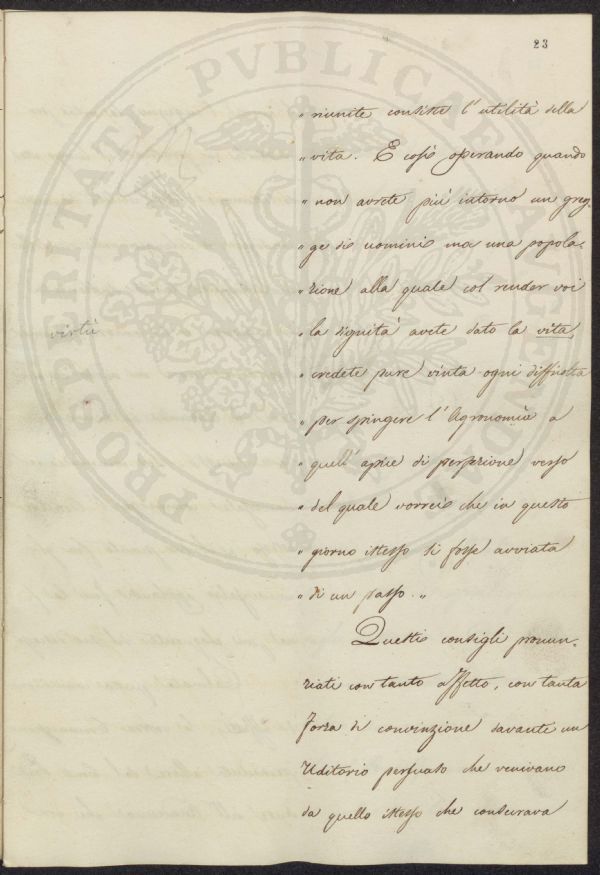 23
„ riunite consiste l'utilità della
„ vita. E così operando quando
„ non avrete più intorno un greg-
„ ge di uomini ma una popola-
„ zione alla quale col render voi
„ la dignità avete dato la vita
virtù
„ credete pure vinta ogni difficoltà
„ per spingere l'Agronomia a
„ quell'apice di perfezione verso
„ del quale vorrei che in questo
„ giorno istesso si fosse avviata
„ di un passo. „
Questi consigli pronun-
ziati con tanto affetto, con tanta
forza di convinzione davanti un
Uditorio persuaso che venivano
da quello istesso che
PROSPERITATI PVBLICAE AVGENDAE